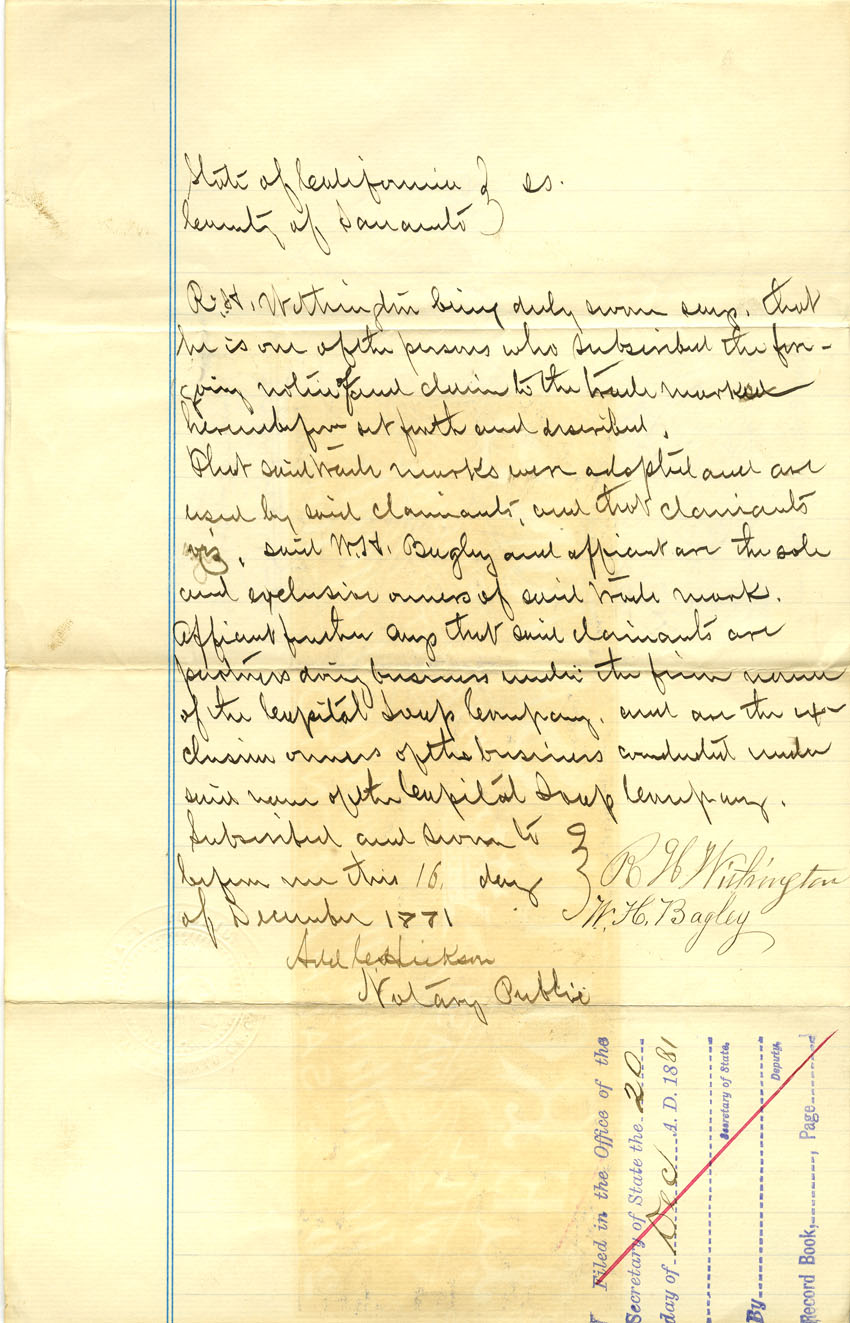 State of California } ss.
County of Sacramento }
R. H. Withington being duly sworn says, that
he is one of the persons who subscribed the fore-
going notice of and claim to the trade mark
hereinbefore set forth and described.
That said trade marks were adopted and are
used by said claimants, and that claimants
viz, said W.H. Bagley and affiant are the sole
and exclusive owners of said trade mark.
Affiant further says that said claimants are
partners doing business under the firm name
of the Capital Soap Company, and are the ex-
clusive owners of the business conducted under
said name of the Capital Soap Company.
Subscribed and sworn to }
before me this 16. day
of December 1881
R H Withington
W. H. Bagley
Add C. Hinkson
Notary Public
Filed in the Office of the
Secretary of State the 20
day of Dec A. D. 1881
Secretary of State.
By Deputy.
Record Book, , Page